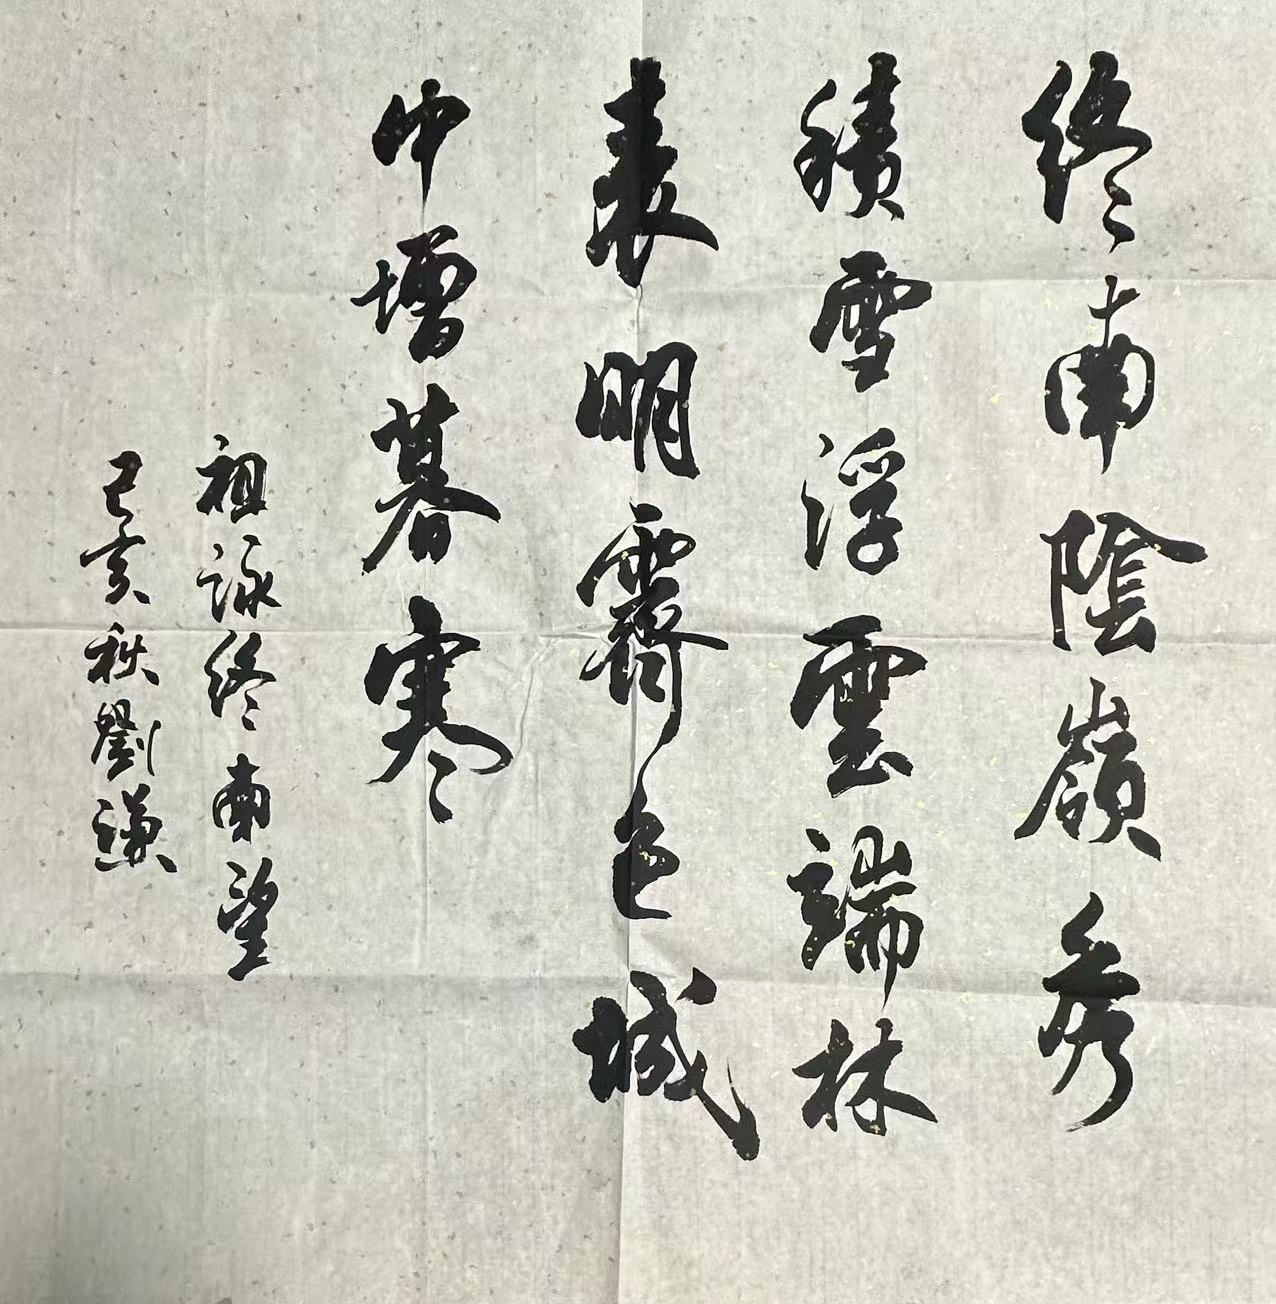 終南陰嶺秀
積雪浮雲端林
表明霽色城
中增暮寒
祖詠終南望
己亥秋劉謙